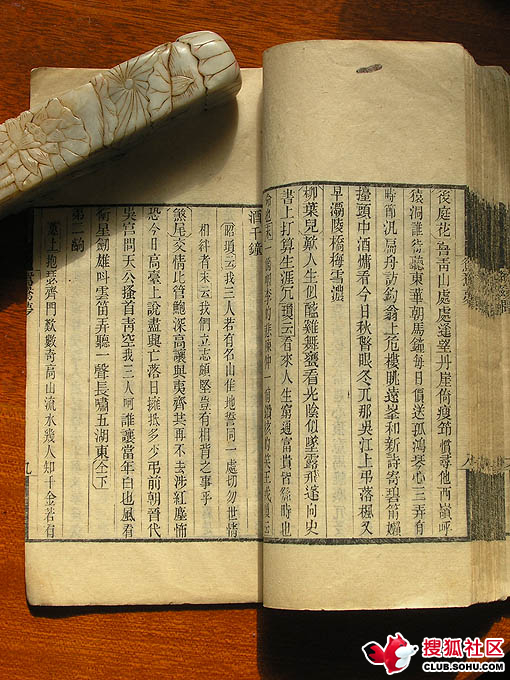 後庭花 魯青山處處通望丹崖倚瘦筇慣尋他西嶺呼
猿洞誰待聽東華朝馬鐘每日價送孤鴻琴心三弄有
時節汎扁舟訪釣翁上危樓眺遠峯和新詩寄碧筩嬾
擡頭中酒慵看今日秋瞖眼冬兀那吳江上弔落楓又
早灞陵橋梅雪濃
柳葉兒歎人生似醯雞舞甕看光陰似墜露那逢向史
書上打算生涯冗 瓊云看來人生窮通富貴皆繇時也
命也
酒千鐘
昭瓊云我三人若有名山隹地誓同一處切勿世情
相絆者末云我們立志頗堅豈有相背之事乎
煞尾交情比管鮑深高讓與夷齊其再不去涉紅塵怖
恐今日高臺上說盡興亡落日擁抵多少弔前朝晉代
吳宮問天公搔首靑空我三人呵誰讓當年白也風看
衝星劒雄呌雲笛弄聽一聲長嘯五湖東仝下
第二齣
墓上抱瑟齊門數數奇高山流水幾人知千金若有
九
八
搜狐社区
CLUB.SOHU.COM